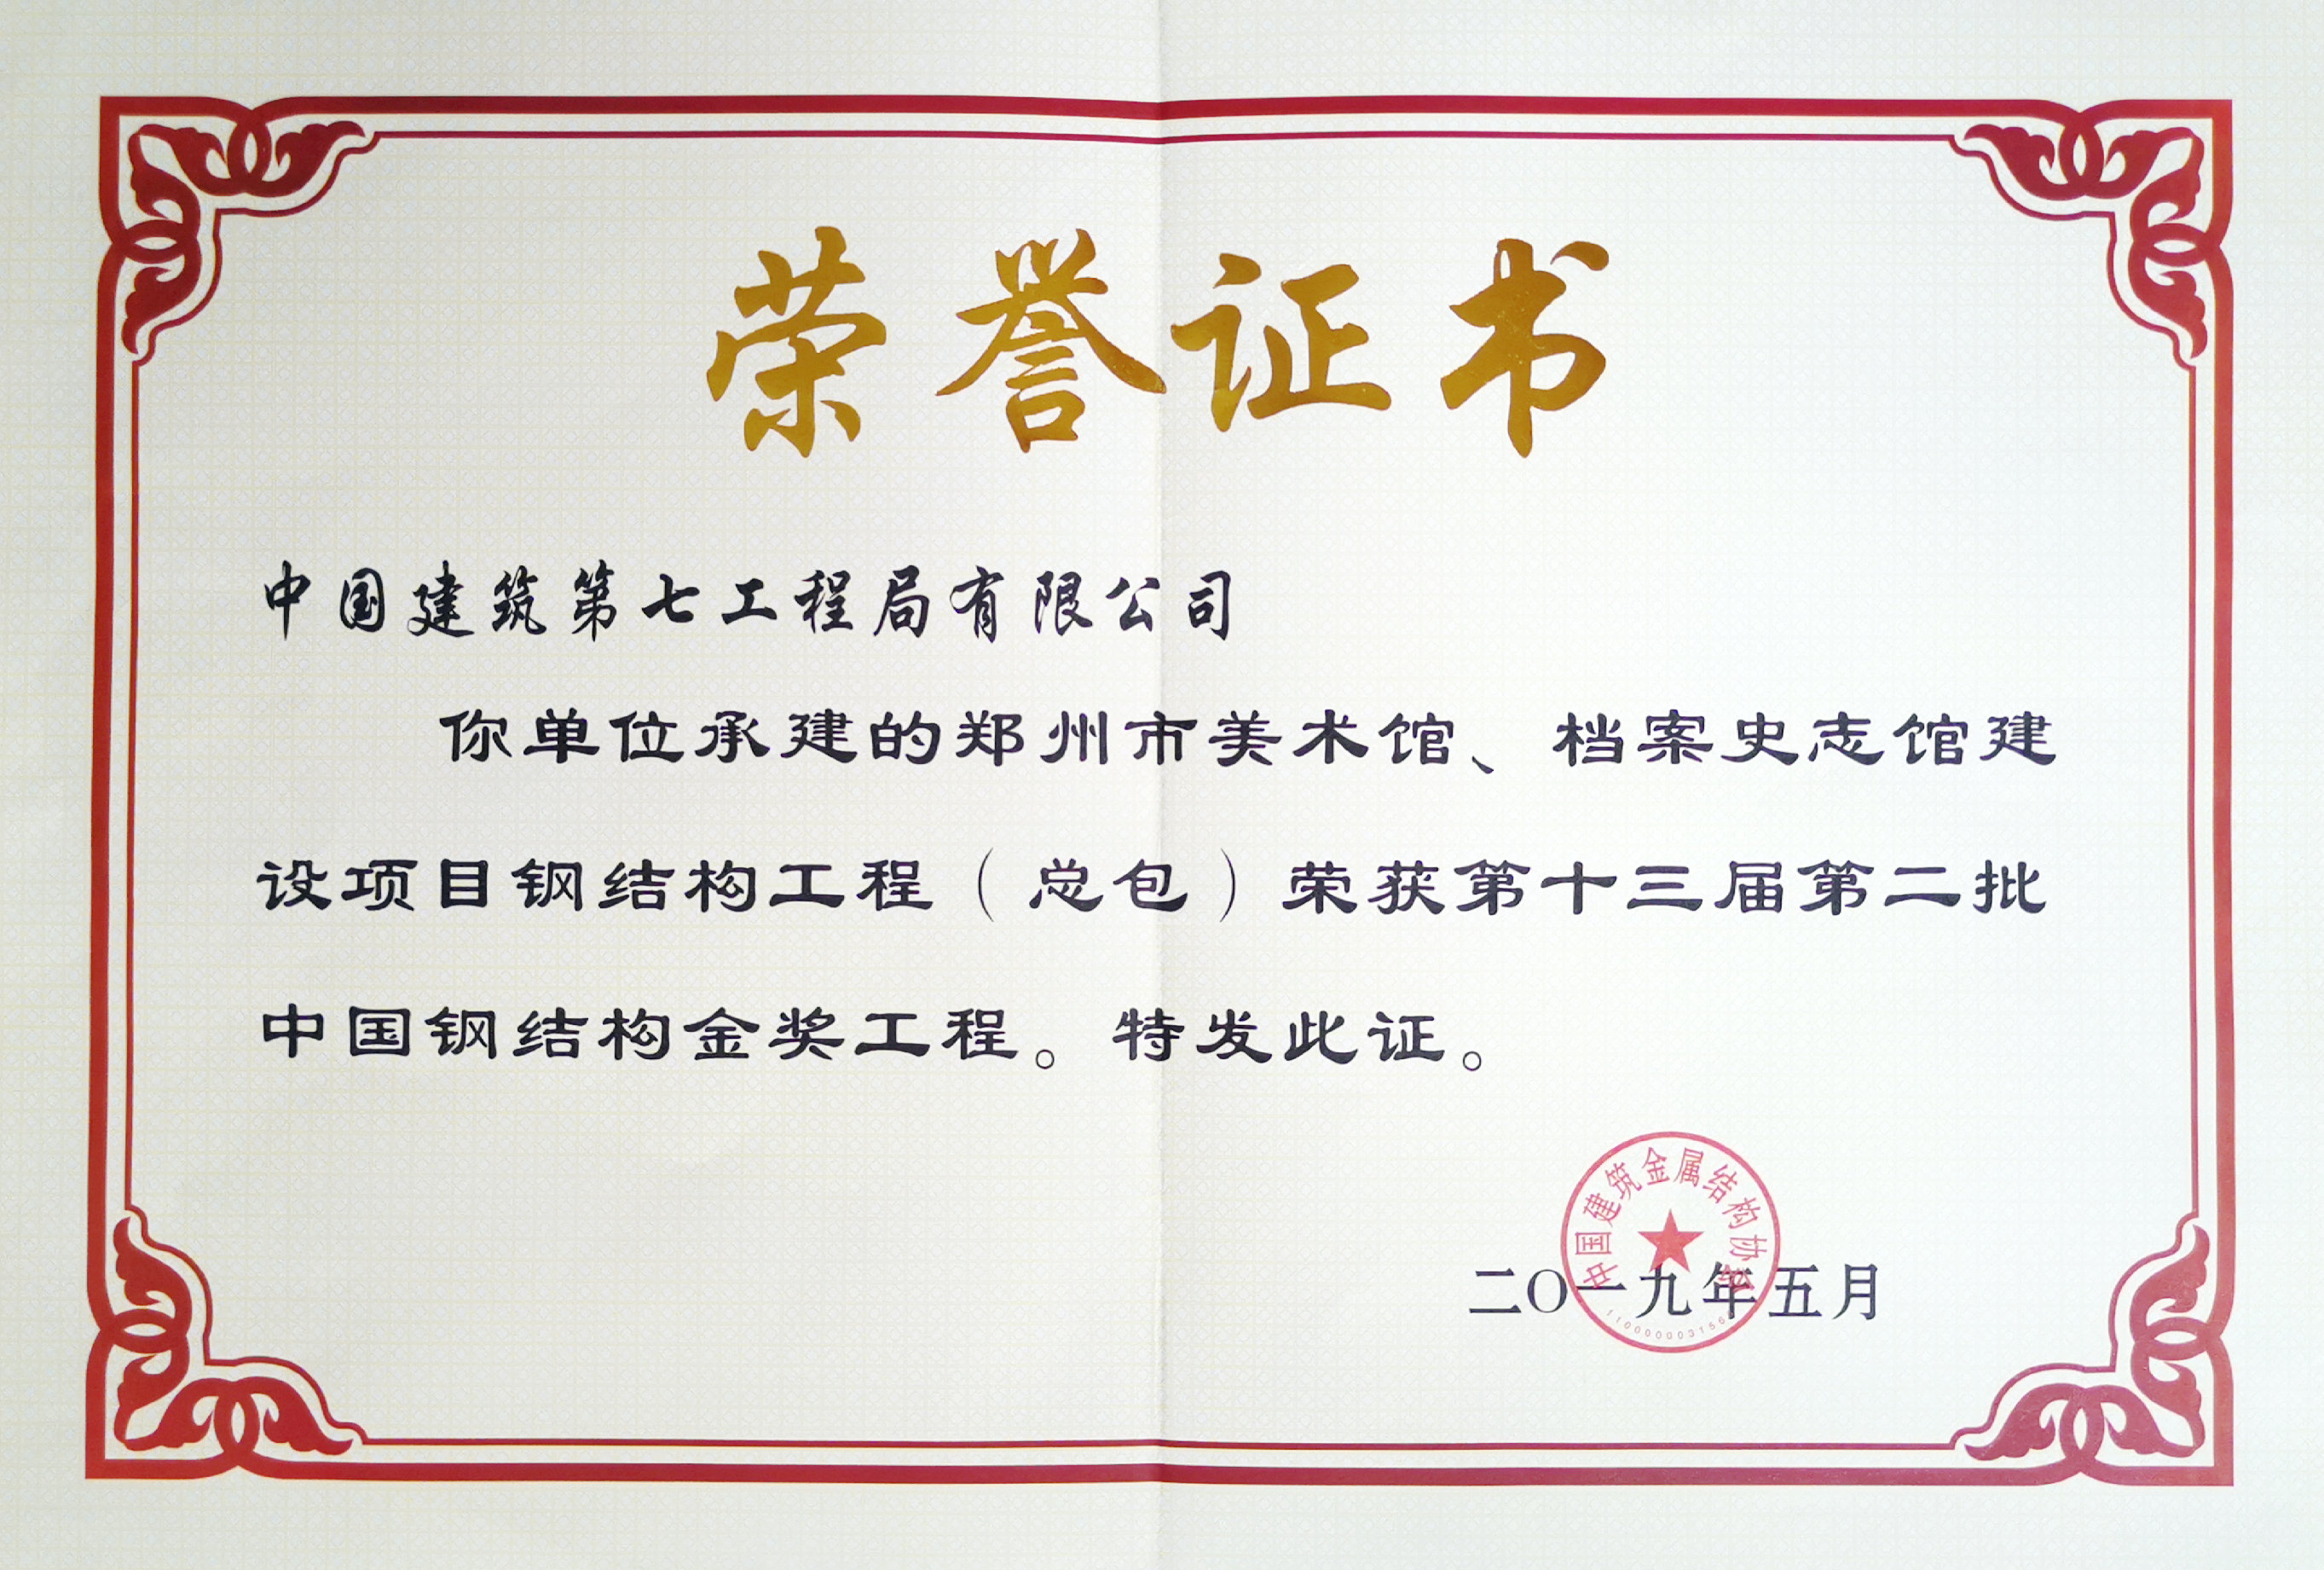 荣誉证书
中国建筑第七工程局有限公司
你单位承建的郑州市美术馆、档案史志馆建
设项目钢结构工程（总包）荣获第十三届第二批
中国钢结构金奖工程。特发此证。
中国建筑金属结构协会
二〇一九年五月